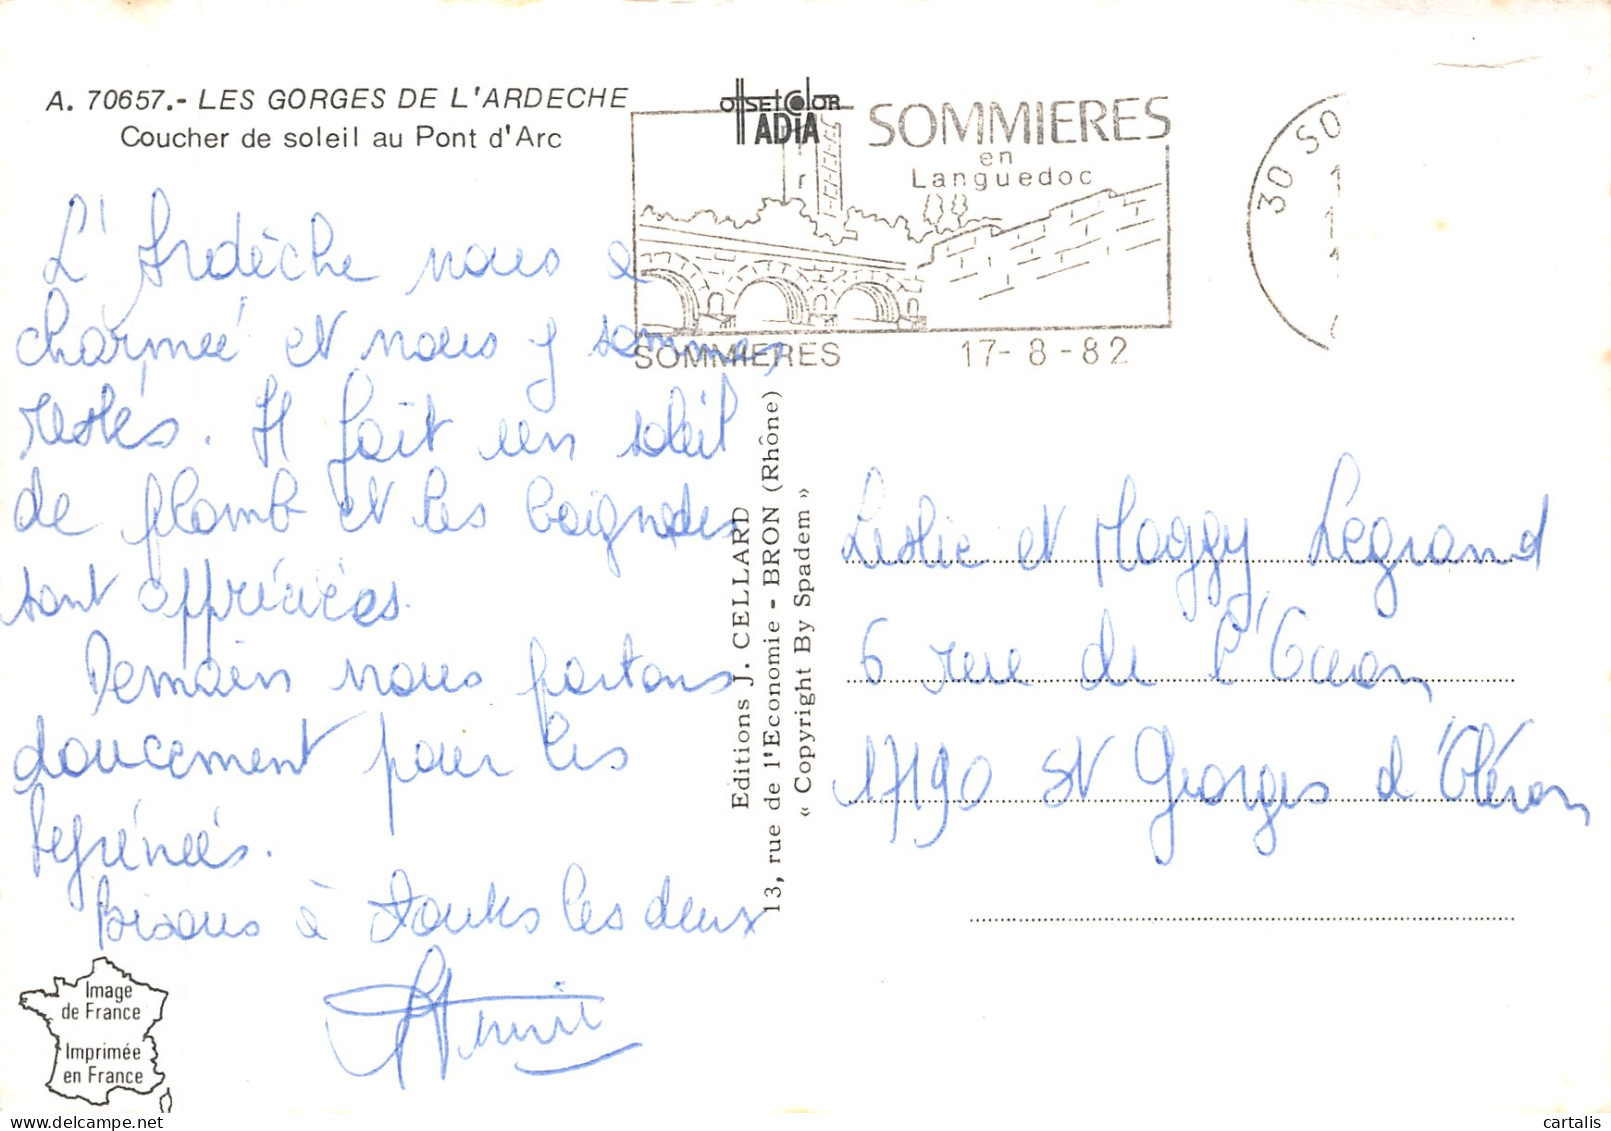 A. 70657.- LES GORGES DE L'ARDECHE
Coucher de soleil au Pont d'Arc
OffsetColor
ADIA
SOMMIERES
en
Languedoc
SOMMIERES 17-8-82
30 SO
L'Ardèche nous a
charmée et nous y sommes
restés. Il fait un soleil
de plomb et les baignades
sont appréciées.
Demain nous partons
doucement pour les
Pyrénées.
Bisous à toutes les deux
Editions J. CELLARD
13, rue de l'Economie - BRON (Rhône)
« Copyright By Spadem »
Leslie et Maggy Legrand
6 rue de l'Océan
17190 St Georges d'Oléron
Image
de France
Imprimée
en France
cartalis